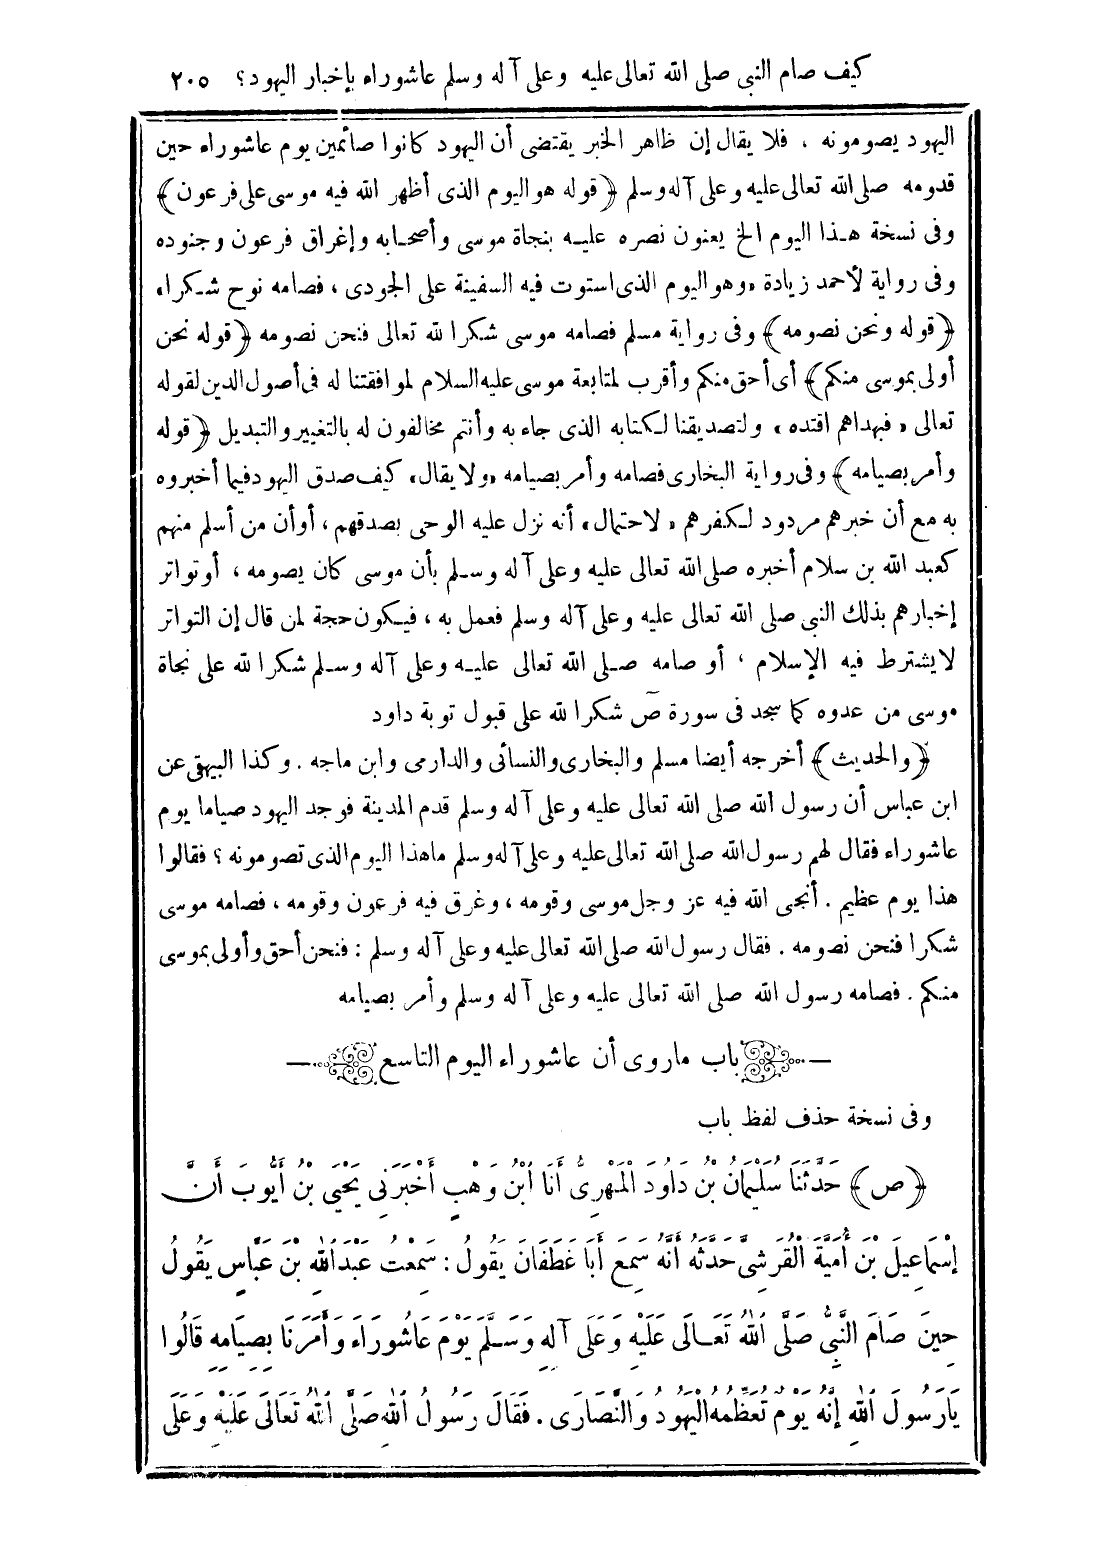 كيف صام النبى صلى الله تعالى عليه وعلى آله وسلم عاشوراء بإخبار اليهود؟ ٢٠٥
اليهود يصومونه ، فلا يقال إن ظاهر الخبر يقتضى أن اليهود كانوا صائمين يوم عاشوراء حين
قدومه صلى الله تعالى عليه وعلى آله وسلم ﴿قوله هو اليوم الذى أظهر الله فيه موسى على فرعون﴾
وفى نسخة هذا اليوم الخ يعنون نصره عليه بنجاة موسى وأصحابه وإغراق فرعون وجنوده
وفى رواية لأحمد زيادة «وهو اليوم الذى استوت فيه السفينة على الجودى ، فصامه نوح شكرا»
﴿قوله ونحن نصومه﴾ وفى رواية مسلم فصامه موسى شكرا لله تعالى فنحن نصومه ﴿قوله نحن
أولى بموسى منكم﴾ أى أحق منكم وأقرب لمتابعة موسى عليه السلام لموافقتنا له فى أصول الدين لقوله
تعالى «فبهداهم اقتده» ولتصديقنا لكتابه الذى جاء به وأنتم مخالفون له بالتغيير والتبديل ﴿قوله
وأمر بصيامه﴾ وفى رواية البخارى فصامه وأمر بصيامه «ولا يقال» كيف صدق اليهود فيما أخبروه
به مع أن خبرهم مردود لكفرهم «لاحتمال» أنه نزل عليه الوحى بصدقهم ، أو أن من أسلم منهم
كعبد الله بن سلام أخبره صلى الله تعالى عليه وعلى آله وسلم بأن موسى كان يصومه ، أو تواتر
إخبارهم بذلك النبى صلى الله تعالى عليه وعلى آله وسلم فعمل به ، فيكون حجة لمن قال إن التواتر
لا يشترط فيه الإسلام ، أو صامه صلى الله تعالى عليه وعلى آله وسلم شكرا لله على نجاة
موسى من عدوه كما سجد فى سورة صٓ شكرا لله على قبول توبة داود
﴿والحديث﴾ أخرجه أيضا مسلم والبخارى والنسائى والدارمى وابن ماجه . وكذا البيهقى عن
ابن عباس أن رسول الله صلى الله تعالى عليه وعلى آله وسلم قدم المدينة فوجد اليهود صياما يوم
عاشوراء فقال لهم رسول الله صلى الله تعالى عليه وعلى آله وسلم ما هذا اليوم الذى تصومونه ؟ فقالوا
هذا يوم عظيم . أنجى الله فيه عز وجل موسى وقومه ، وغرق فيه فرعون وقومه ، فصامه موسى
شكرا فنحن نصومه . فقال رسول الله صلى الله تعالى عليه وعلى آله وسلم : فنحن أحق وأولى بموسى
منكم . فصامه رسول الله صلى الله تعالى عليه وعلى آله وسلم وأمر بصيامه
باب ما روى أن عاشوراء اليوم التاسع
وفى نسخة حذف لفظ باب
﴿ص﴾ حَدَّثَنَا سُلَيْمَانُ بْنُ دَاوُدَ الْمَهْرِىُّ أَنَا ابْنُ وَهْبٍ أَخْبَرَنِى يَحْيَى بْنُ أَيُّوبَ أَنَّ
إِسْمَاعِيلَ بْنَ أُمَيَّةَ الْقُرَشِىَّ حَدَّثَهُ أَنَّهُ سَمِعَ أَبَا غَطَفَانَ يَقُولُ : سَمِعْتُ عَبْدَ اللهِ بْنَ عَبَّاسٍ يَقُولُ
حِينَ صَامَ النَّبِىُّ صَلَّى اللهُ تَعَالَى عَلَيْهِ وَعَلَى آلِهِ وَسَلَّمَ يَوْمَ عَاشُورَاءَ وَأَمَرَنَا بِصِيَامِهِ قَالُوا
يَا رَسُولَ اللهِ إِنَّهُ يَوْمٌ تُعَظِّمُهُ الْيَهُودُ وَالنَّصَارَى . فَقَالَ رَسُولُ اللهِ صَلَّى اللهُ تَعَالَى عَلَيْهِ وَعَلَى